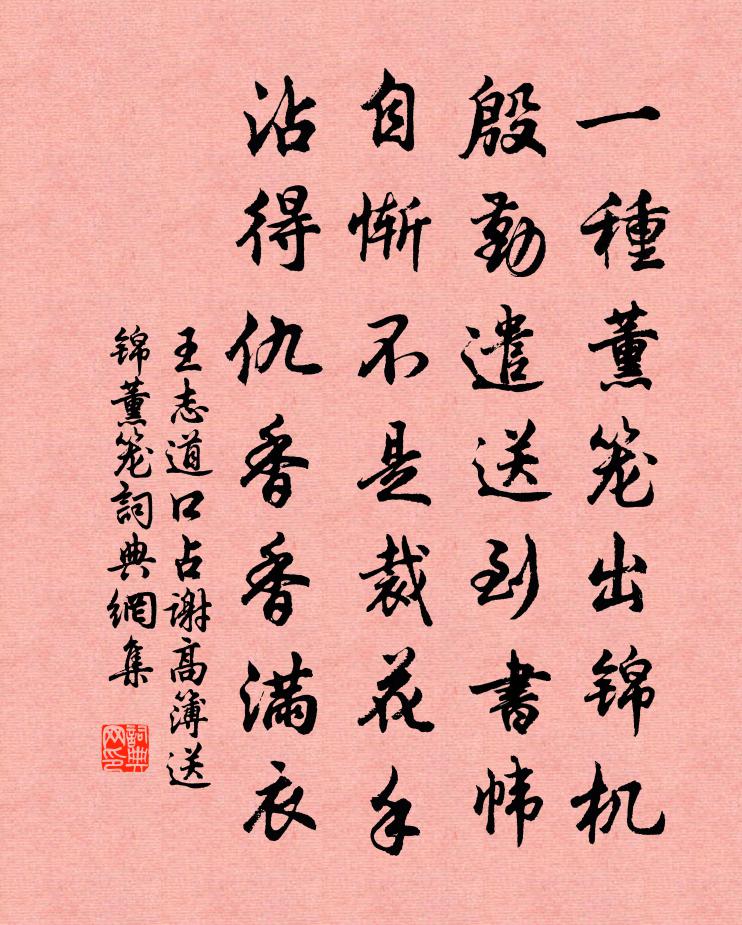 一種薰笼出锦机
殷勤遣送到書帏
自惭不是裁花手
沾得仇香香满衣
王志道口占谢高簿送
锦薰笼詞典網集
詞典网印